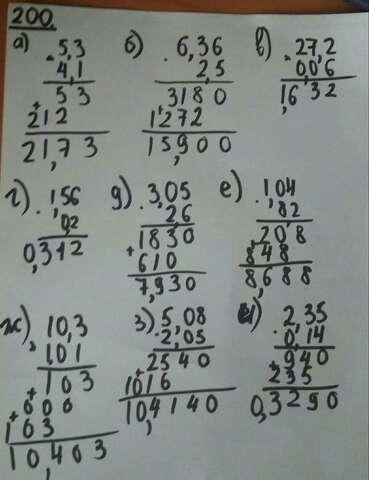 200.
а) 5,3
4,1
53
+212
21,73
б) 6,36
2,5
3180
+1272
15,900
в) 27,2
0,06
1,632
г) 1,56
0,2
0,312
д) 3,05
2,6
1830
+610
7,930
е) 1,04
82
208
+848
8,688
ж) 10,3
101
103
+000
+103
10,403
з) 5,08
2,05
2540
+1016
10,4140
и) 2,35
0,14
940
+235
0,3290